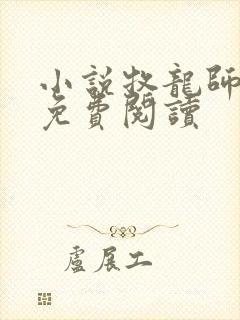 小説牧龍師
免費閱讀
盧展工